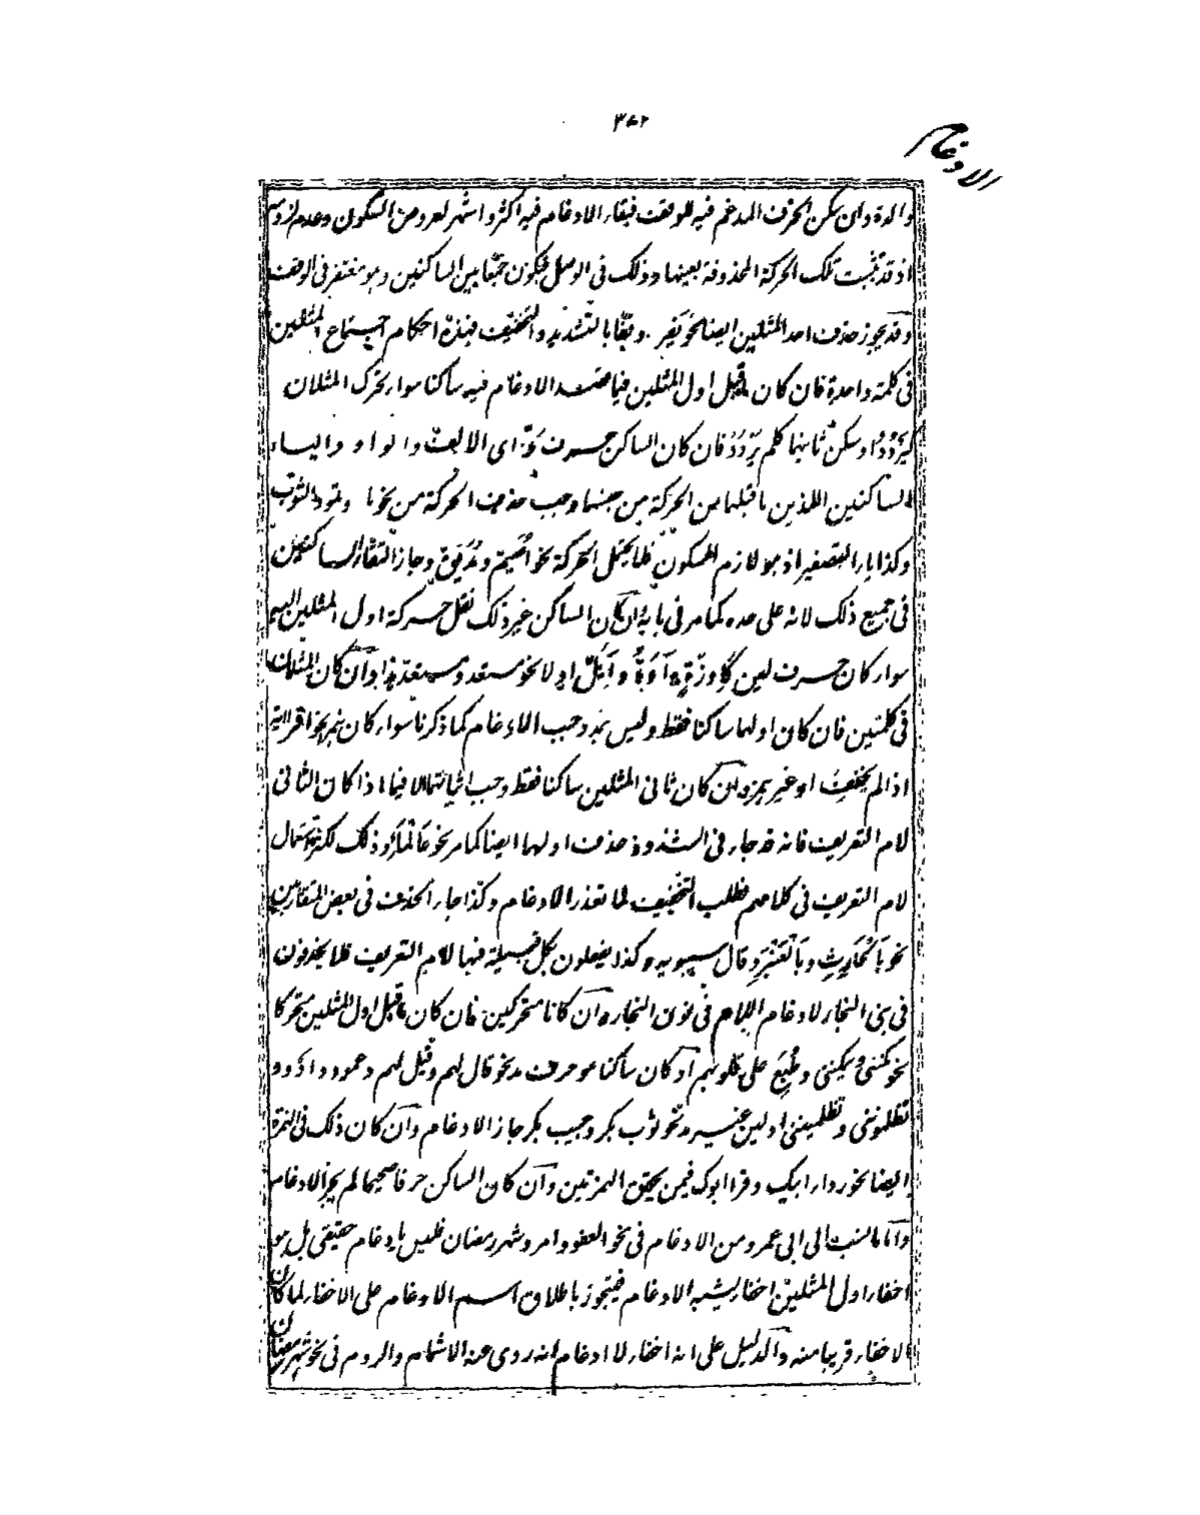 ٣٤٢
الادغام
والدة وان سكن الحرف المدغم فيه للوقف فبقاء الادغام فيه اكثر واشهر لعروض السكون وعدم لزومه
اذ قد تثبت تلك الحركة المحذوفة بعينها وذلك فى الوصل فيكون جمعا بين الساكنين وهو مغتفر فى الوقف
وقد يجوز حذف احد المثلين ايضا نحو يفر وبقا بالتشديد والتخفيف فهذه احكام اجتماع المثلين
فى كلمة واحدة فان كان ما قبل اول المثلين فيما قصد الادغام فيه ساكنا سواء تحرك المثلان
كيردد او سكن ثانيهما كلم يردد فان كان الساكن حرف مد اى الالف والواو والياء
الساكنين اللذين ما قبلهما من الحركة من جنسهما وجب حذف الحركة من نحو ماد وتمود الثوب
وكذا ياء التصغير اذ هو لازم السكون فلا يحتمل الحركة نحو اصيم ومديق وجاز التقاء الساكنين
فى جميع ذلك لانه على حده كما مر فى بابه وان كان الساكن غير ذلك نقل حركة اول المثلين اليه
سواء كان حرف لين كاوزة وآوبة وايل او لا نحو مستعد ومستعدة وان كان المثلان
فى كلمتين فان كان اولهما ساكنا فقط وليس بمد وجب الادغام كما ذكرنا سواء كان بهمز نحو اقرأ آية
اذا لم يخفف او غير همز وان كان ثانى المثلين ساكنا فقط وجب اثباتهما الا فيما اذا كان الثانى
لام التعريف فانه قد جاء فى الشذوذ حذف اولهما ايضا كما مر نحو علماء وذلك لكثرة استعمال
لام التعريف فى كلامهم فطلب التخفيف لما تعذر الادغام وكذا جاء الحذف فى بعض المتقاربين
نحو بالحارث وبالعنبر وقال سيبويه وكذا يفعلون بكل قبيلة فيها لام التعريف فلا يحذفون
فى بنى النجار لادغام اللام فى نون النجار وان كانا متحركين فان كان ما قبل اول المثلين متحركا
نحو مكننى ويمكننى وطبع على قلوبهم او كان ساكنا هو حرف مد نحو قال لهم وقيل لهم وعمود داود و
تظلموننى وتظلميننى او لين غير مد نحو ثوب بكر وجيب بكر جاز الادغام وان كان ذلك فى الهمزة
ايضا نحو رداء ابيك وقرأ ابوك فيمن يحقق الهمزتين وان كان الساكن حرفا صحيحا لم يجز الادغام
واما ما نسب الى ابى عمرو من الادغام فى نحو العفو وامر وشهر رمضان فليس بادغام حقيقى بل هو
اخفاء اول المثلين اخفاء يشبه الادغام فيتجوز باطلاق اسم الادغام على الاخفاء لما كان
الاخفاء قريبا منه والدليل على انه اخفاء لا ادغام انه روى عنه الاشمام والروم فى نحو شهر رمضان